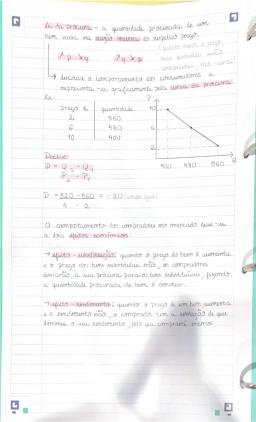 Lei da procura - a quantidade procurada de um
bem varia na razão inversa do respetivo preço.
↓p ↑q ↑q ↓p
(quanto menor o preço,
mais quantidade
→ descreve o comportamento dos consumidores e
representa-se graficamente pela curva da procura
Ex:
preço € quantidade
2 560
6 480
10 400
P
10
6
2
400 480 560 Q
Declive:
D = Q2 - Q1
P2 - P1
D = = -20
4 - 2
O comportamento dos compradores no mercado deve-se
a dois efeitos económicos:
→ efeito-substituição: quando o preço do bem X aumenta
e o preço dos bens substitutos não, os compradores
a sua procura para os bens substitutos, fazendo
a quantidade procurada do bem X diminuir.
→ efeito-rendimento: quando o preço de um bem aumenta
e o rendimento não, o comprador tem a sensação de que
diminui o seu rendimento, pelo que compram menos